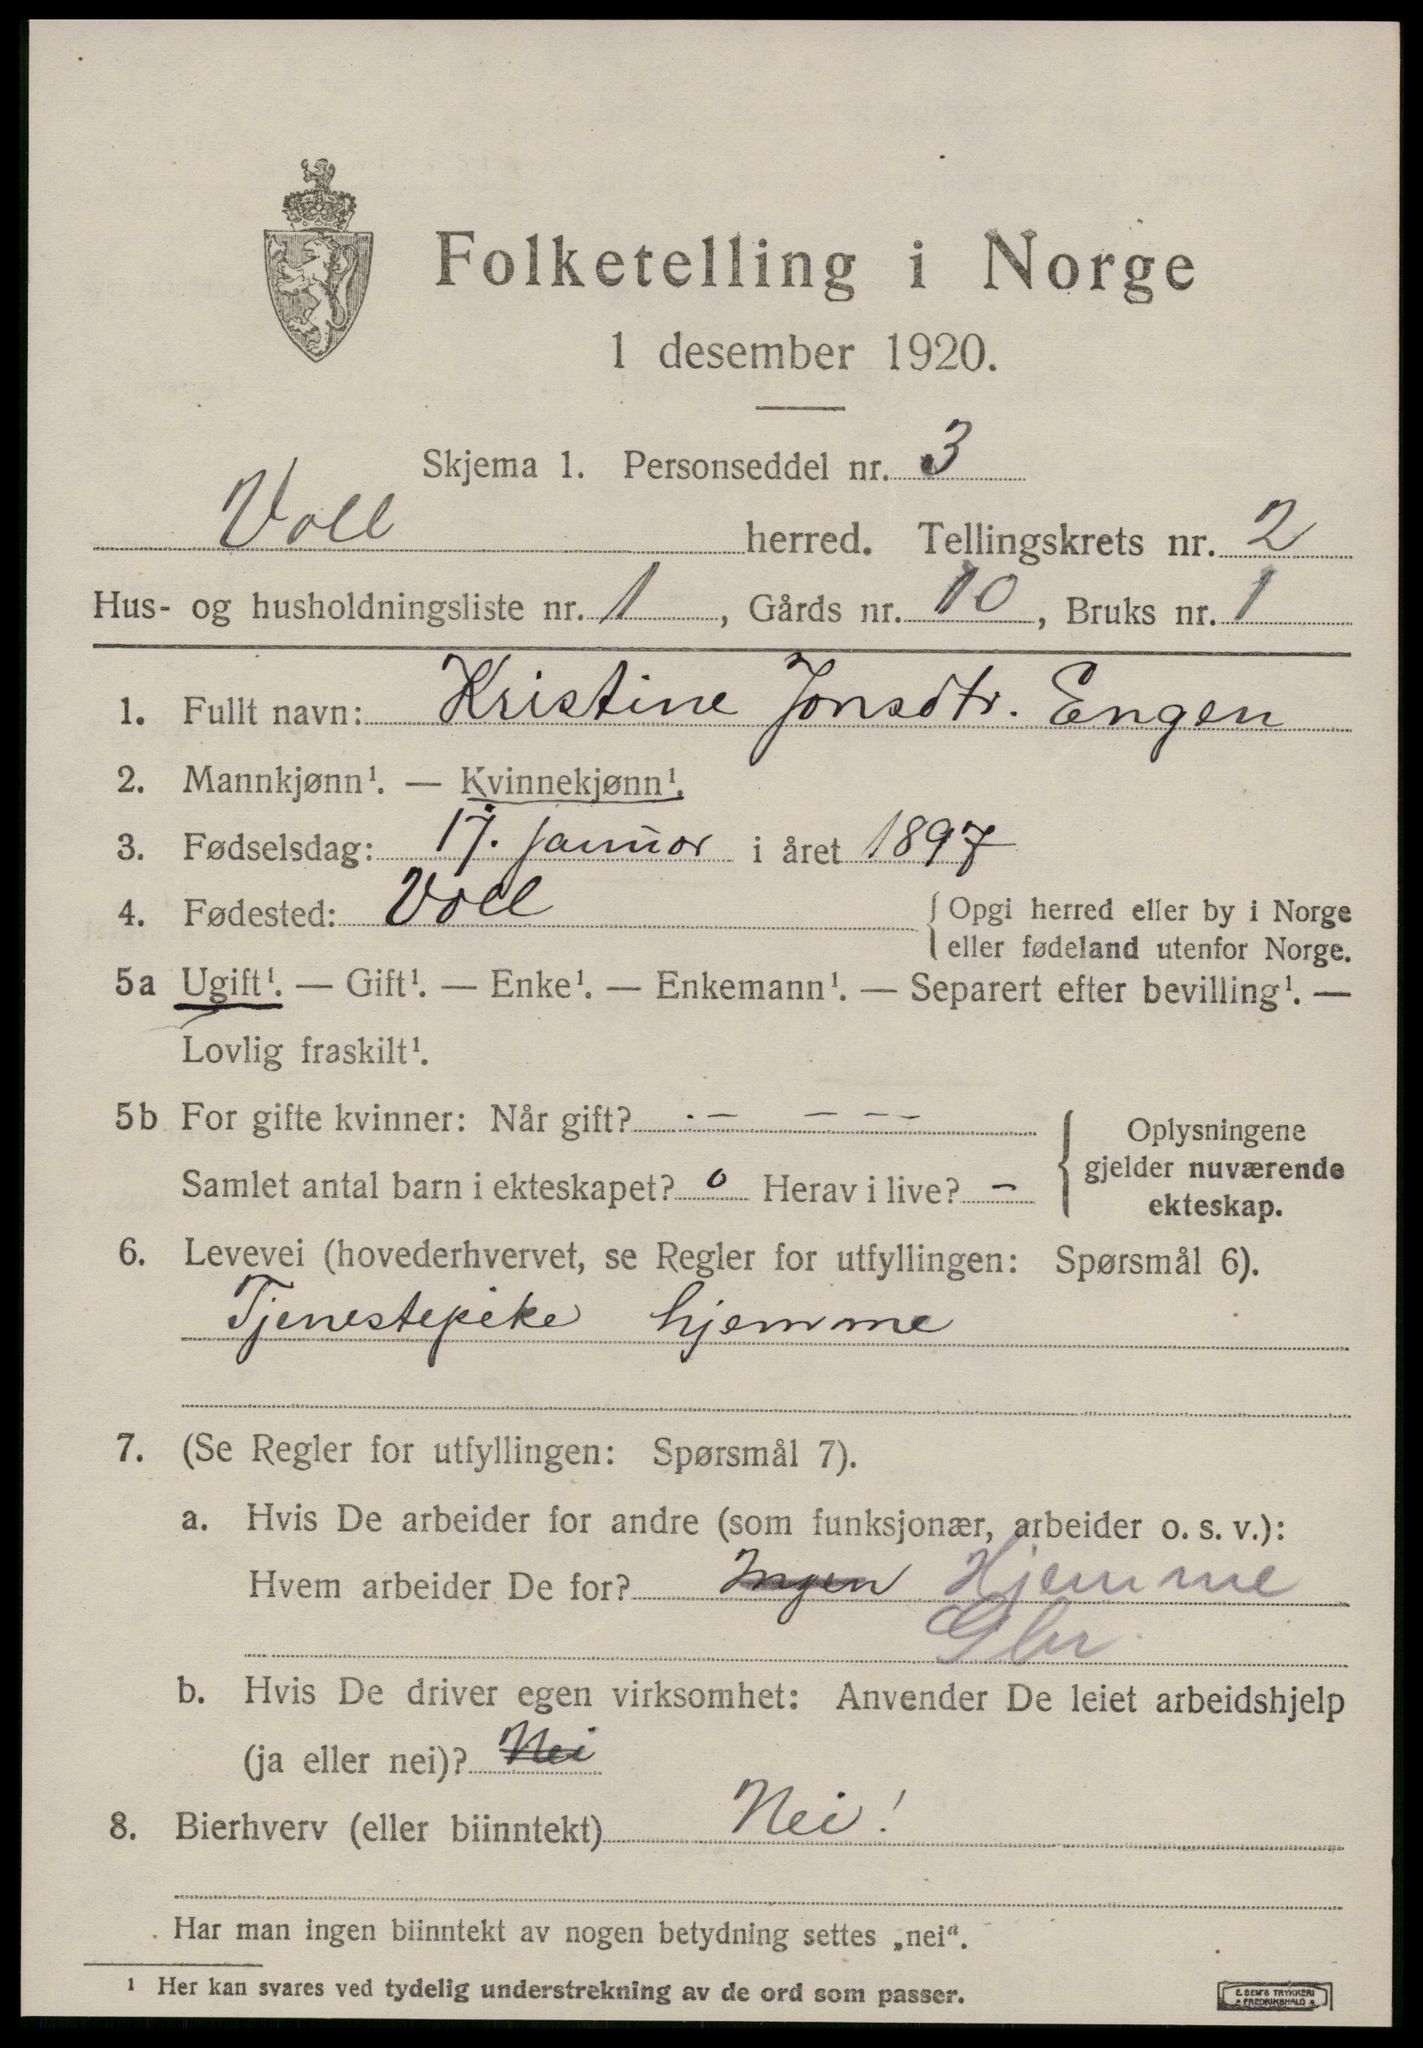 Folketelling i Norge
1 desember 1920.
Skjema 1. Personseddel nr. 3
Voll herred. Tellingskrets nr. 2
Hus- og husholdningsliste nr. 1, Gårds nr. 10, Bruks nr. 1
1. Fullt navn: Kristine Jonsdtr. Engen
2. Mannkjønn¹. — Kvinnekjønn¹.
3. Fødselsdag: 17. januar i året 1897
4. Fødested: Voll { Opgi herred eller by i Norge
eller fødeland utenfor Norge.
5a Ugift¹. — Gift¹. — Enke¹. — Enkemann¹. — Separert efter bevilling¹. —
Lovlig fraskilt¹.
5b For gifte kvinner: Når gift? - — — —
Samlet antal barn i ekteskapet? 0 Herav i live? -
Oplysningene
gjelder nuværende
ekteskap.
6. Levevei (hovederhvervet, se Regler for utfyllingen: Spørsmål 6).
Tjenestepike hjemme
7. (Se Regler for utfyllingen: Spørsmål 7).
a. Hvis De arbeider for andre (som funksjonær, arbeider o. s. v.):
Hvem arbeider De for? Ingen Hjemme
Gbr.
b. Hvis De driver egen virksomhet: Anvender De leiet arbeidshjelp
(ja eller nei)? Nei
8. Bierhverv (eller biinntekt) Nei!
Har man ingen biinntekt av nogen betydning settes „nei“.
¹ Her kan svares ved tydelig understrekning av de ord som passer.
E. SEM'S TRYKKERI
FREDRIKSHALD